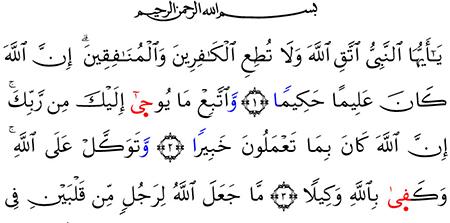 بسم الله الرحمن الرحيم
يَـٰٓأَيُّهَا ٱلنَّبِىُّ ٱتَّقِ ٱللَّهَ وَلَا تُطِعِ ٱلْكَـٰفِرِينَ وَٱلْمُنَـٰفِقِينَ ۗ إِنَّ ٱللَّهَ
كَانَ عَلِيمًا حَكِيمًا ﴿١﴾ وَٱتَّبِعْ مَا يُوحَىٰٓ إِلَيْكَ مِن رَّبِّكَ ۚ
إِنَّ ٱللَّهَ كَانَ بِمَا تَعْمَلُونَ خَبِيرًا ﴿٢﴾ وَتَوَكَّلْ عَلَى ٱللَّهِ ۚ
وَكَفَىٰ بِٱللَّهِ وَكِيلًا ﴿٣﴾ مَّا جَعَلَ ٱللَّهُ لِرَجُلٍ مِّن قَلْبَيْنِ فِى